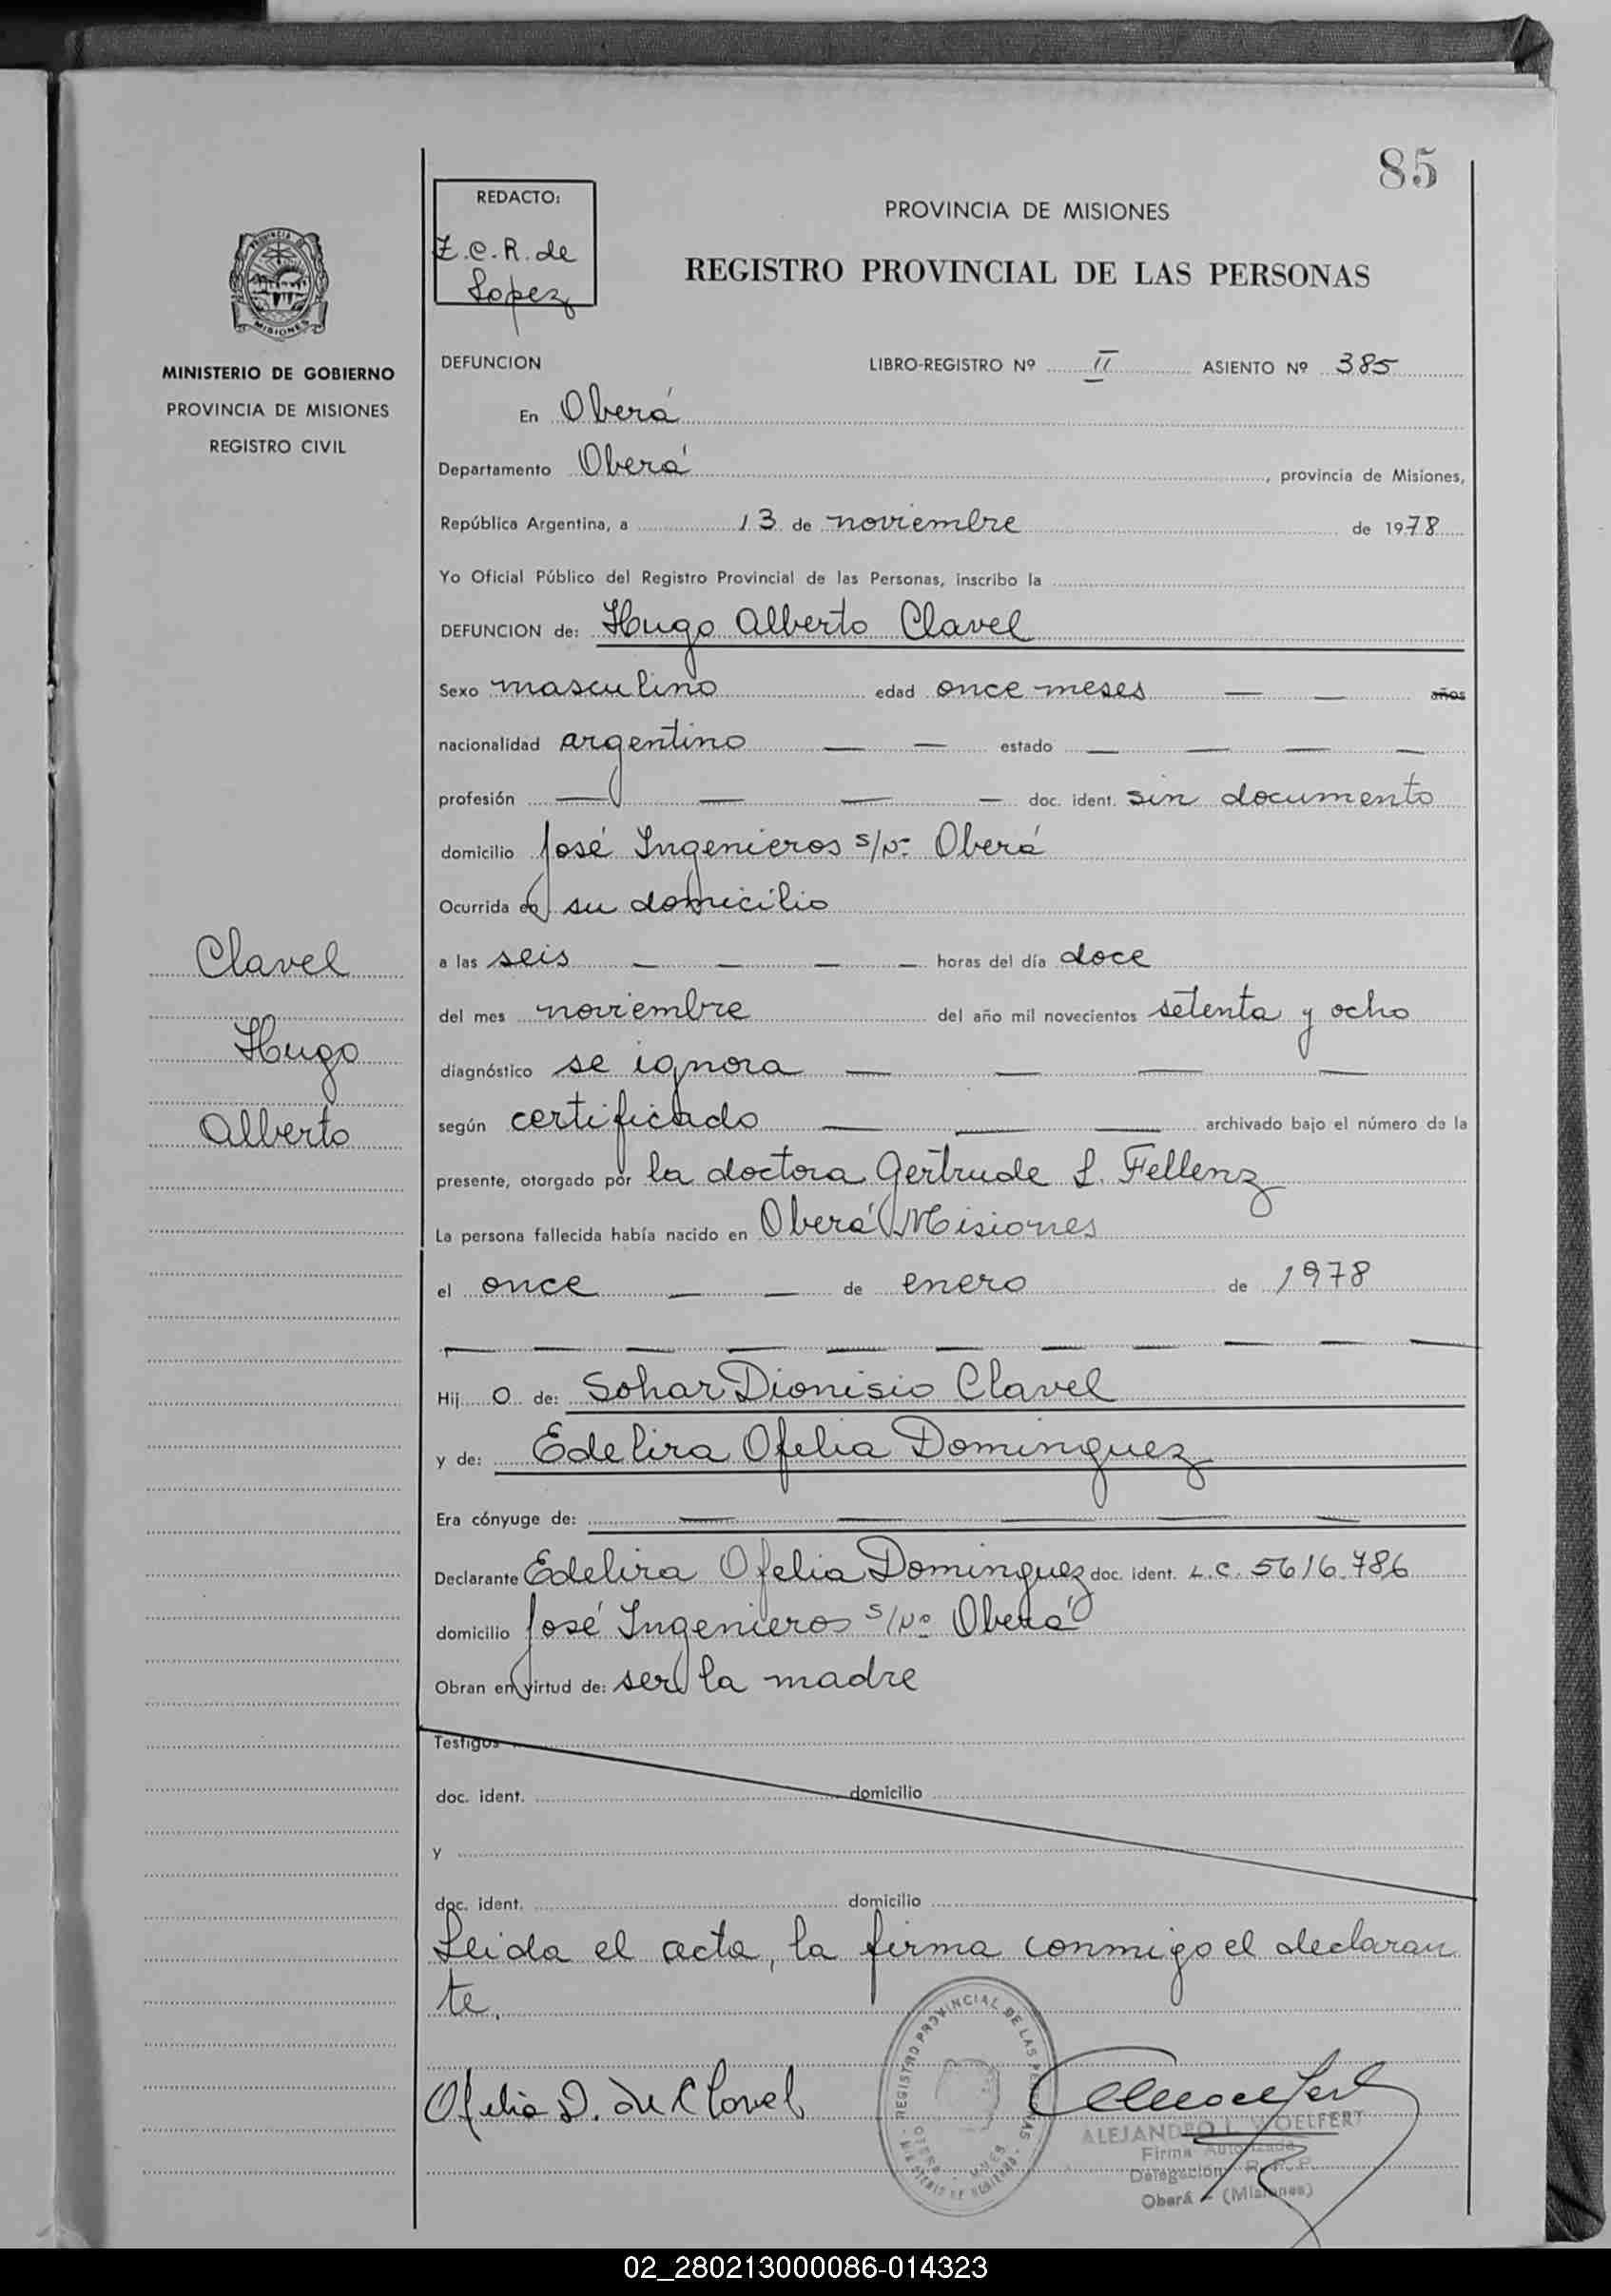 85
REDACTO:
Z.C.R. de
Lopez
PROVINCIA DE MISIONES
REGISTRO PROVINCIAL DE LAS PERSONAS
PROVINCIA DE
MISIONES
MINISTERIO DE GOBIERNO
PROVINCIA DE MISIONES
REGISTRO CIVIL
DEFUNCION LIBRO-REGISTRO Nº II ASIENTO Nº 385
En Oberá
Departamento Oberá, provincia de Misiones,
República Argentina, a 13 de noviembre de 1978
Yo Oficial Público del Registro Provincial de las Personas, inscribo la
DEFUNCION de: Hugo Alberto Clavel
Sexo masculino edad once meses — — años
nacionalidad argentino — — estado — — — —
profesión — — — — doc. ident. sin documento
domicilio José Ingenieros s/Nº Oberá
Ocurrida en su domicilio
Clavel
Hugo
Alberto
a las seis — — — — horas del día doce
del mes noviembre del año mil novecientos setenta y ocho
diagnóstico se ignora — — — —
según certificado — — — archivado bajo el número de la
presente, otorgado por la doctora Gertrude L. Fellenz
La persona fallecida había nacido en Oberá Misiones
el once — — de enero de 1978
Hijo de: Sohar Dionisio Clavel
y de: Edelira Ofelia Dominguez
Era cónyuge de: — — — — —
Declarante Edelira Ofelia Dominguez doc. ident. L.C. 5616.786
domicilio José Ingenieros s/Nº Oberá
Obran en virtud de: ser la madre
Testigos
doc. ident. domicilio
y
doc. ident. domicilio
Leida el acta, la firma conmigo el declaran
te.
Ofelia D. de Clavel
REGISTRO PROVINCIAL DE LAS PERSONAS
ALEJANDRO L. WOELFERT
Firma Autorizada
Delegación R.P.P.
Oberá - (Misiones)
02_280213000086-014323